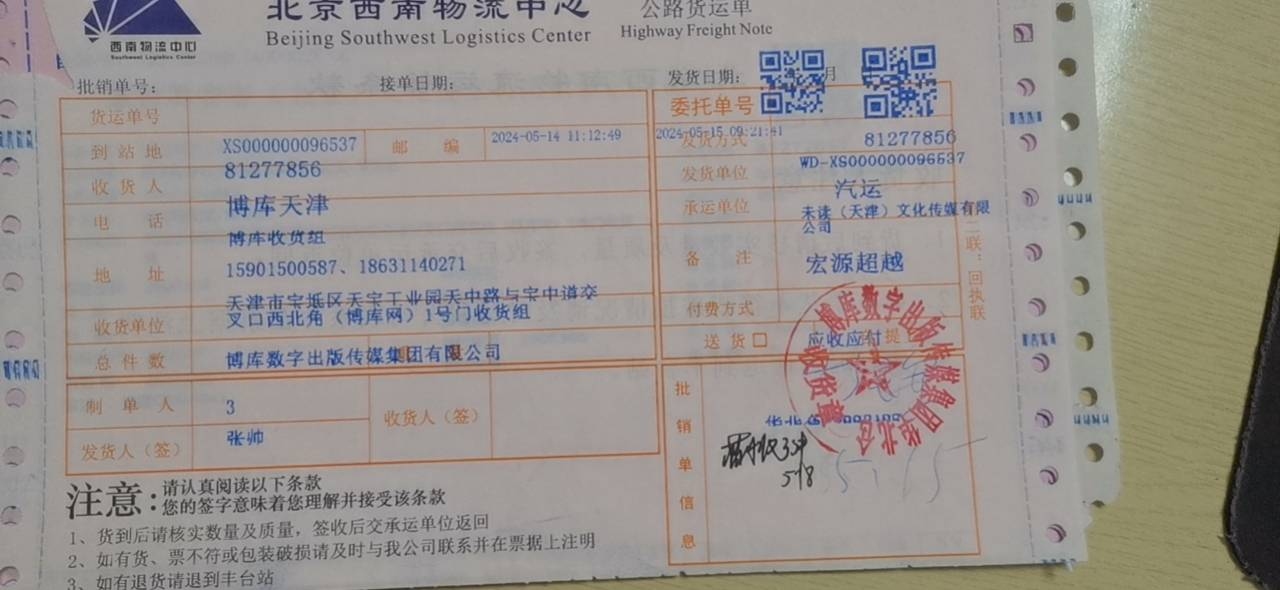 西南物流中心
Southwest Logistics Center
北京西南物流中心
Beijing Southwest Logistics Center
公路货运单
Highway Freight Note
批销单号：
接单日期：
发货日期：
月
货运单号
委托单号
到站地
XS000000096537
邮 编
2024-05-14 11:12:49
2024-05-15 09:21:41
发货方式
81277856
收货人
81277856
发货单位
WD-XS000000096537
电 话
博库天津
承运单位
汽运
博库收货组
未读（天津）文化传媒有限
公司
地 址
15901500587、18631140271
备 注
宏源超越
天津市宝坻区天宝工业园天中路与宝中道交
叉口西北角（博库网）1号门收货组
收货单位
付费方式
总件数
博库数字出版传媒集团有限公司
送货口
应收应付
提
制单人
3
收货人（签）
发货人（签）
张帅
批销单信息
博库数字出版传媒集团华北仓
收货章
5/8
二联：回执联
注意：
请认真阅读以下条款
您的签字意味着您理解并接受该条款
1、货到后请核实数量及质量，签收后交承运单位返回
2、如有货、票不符或包装破损请及时与我公司联系并在票据上注明
3、如有退货请退到丰台站